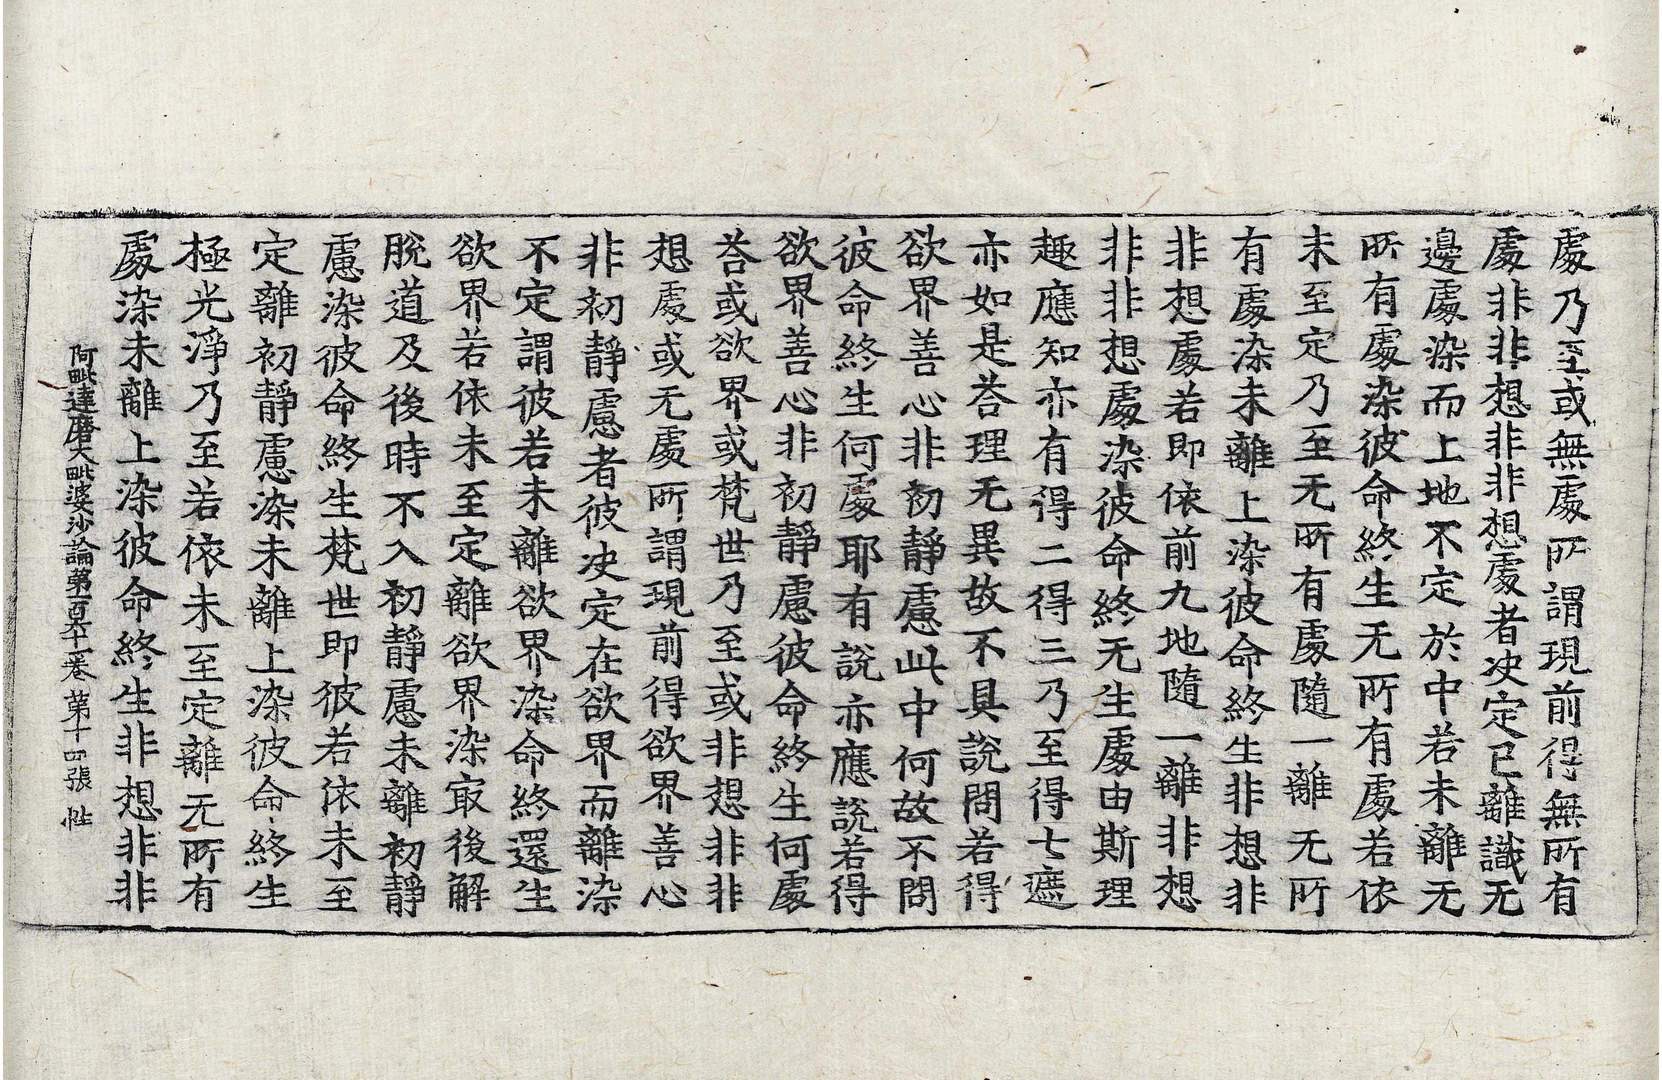 處乃至或無處所謂現前得無所有
處非非想非非想處者决定已離識无
邊處染而上地不定於中若未離无
所有處染彼命終生无所有處若依
未至定乃至无所有處隨一離无所
有處染未離上染彼命終生非想非
非想處若即依前九地隨一離非想
非非想處染彼命終无生處由斯理
趣應知亦有得二得三乃至得七遮
亦如是荅理无異故不具說問若得
欲界善心非初靜慮此中何故不問
彼命終生何處耶有說亦應說若得
欲界善心非初靜慮彼命終生何處
荅或欲界或梵世乃至或非想非非
想處或无處所謂現前得欲界善心
非初靜慮者彼决定在欲界而離染
不定謂彼若未離欲界染命終還生
欲界若依未至定離欲界染㝡後解
脫道及後時不入初靜慮未離初靜
慮染彼命終生梵世即彼若依未至
定離初靜慮染未離上染彼命終生
極光淨乃至若依未至定離无所有
處染未離上染彼命終生非想非非
阿毗達磨大毗婆沙論第百六十一卷 第十四張 性